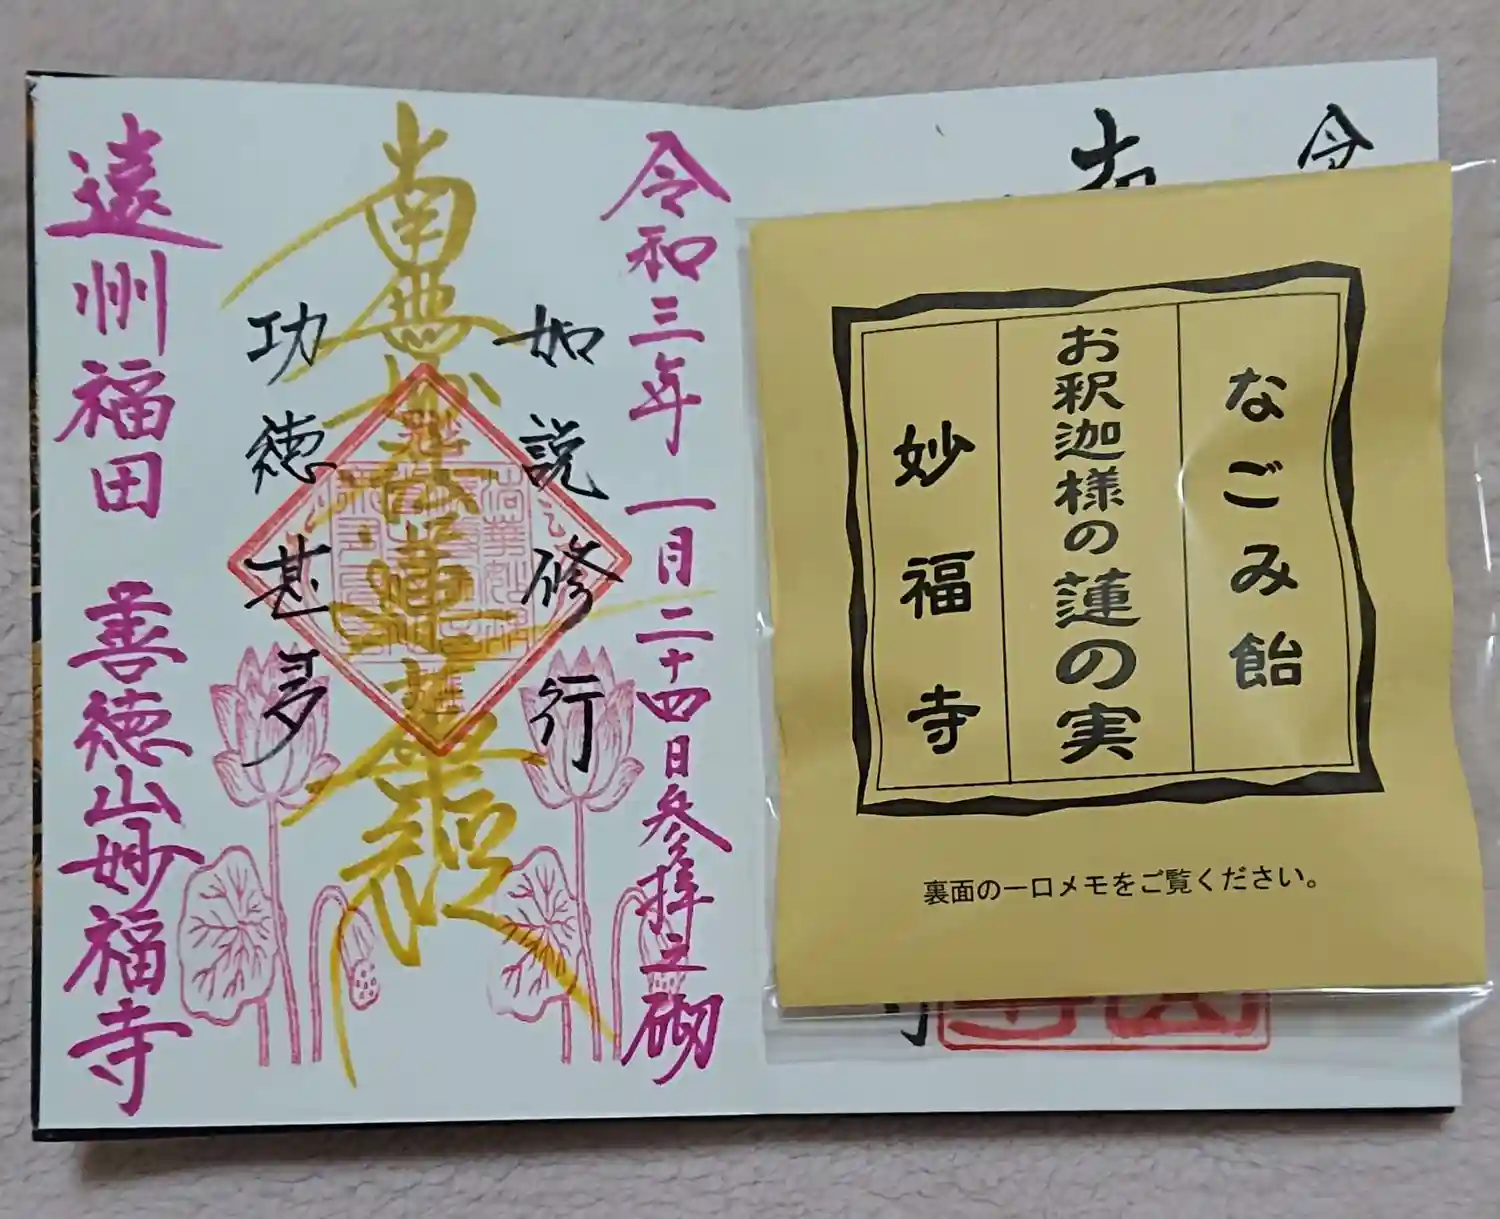 令
なごみ飴
お釈迦様の蓮の実
妙福寺
裏面の一口メモをご覧ください。
令和三年 一月二十四日参拝之砌
如説修行
南無妙法蓮華経
功徳甚多
遠州福田 善徳山妙福寺